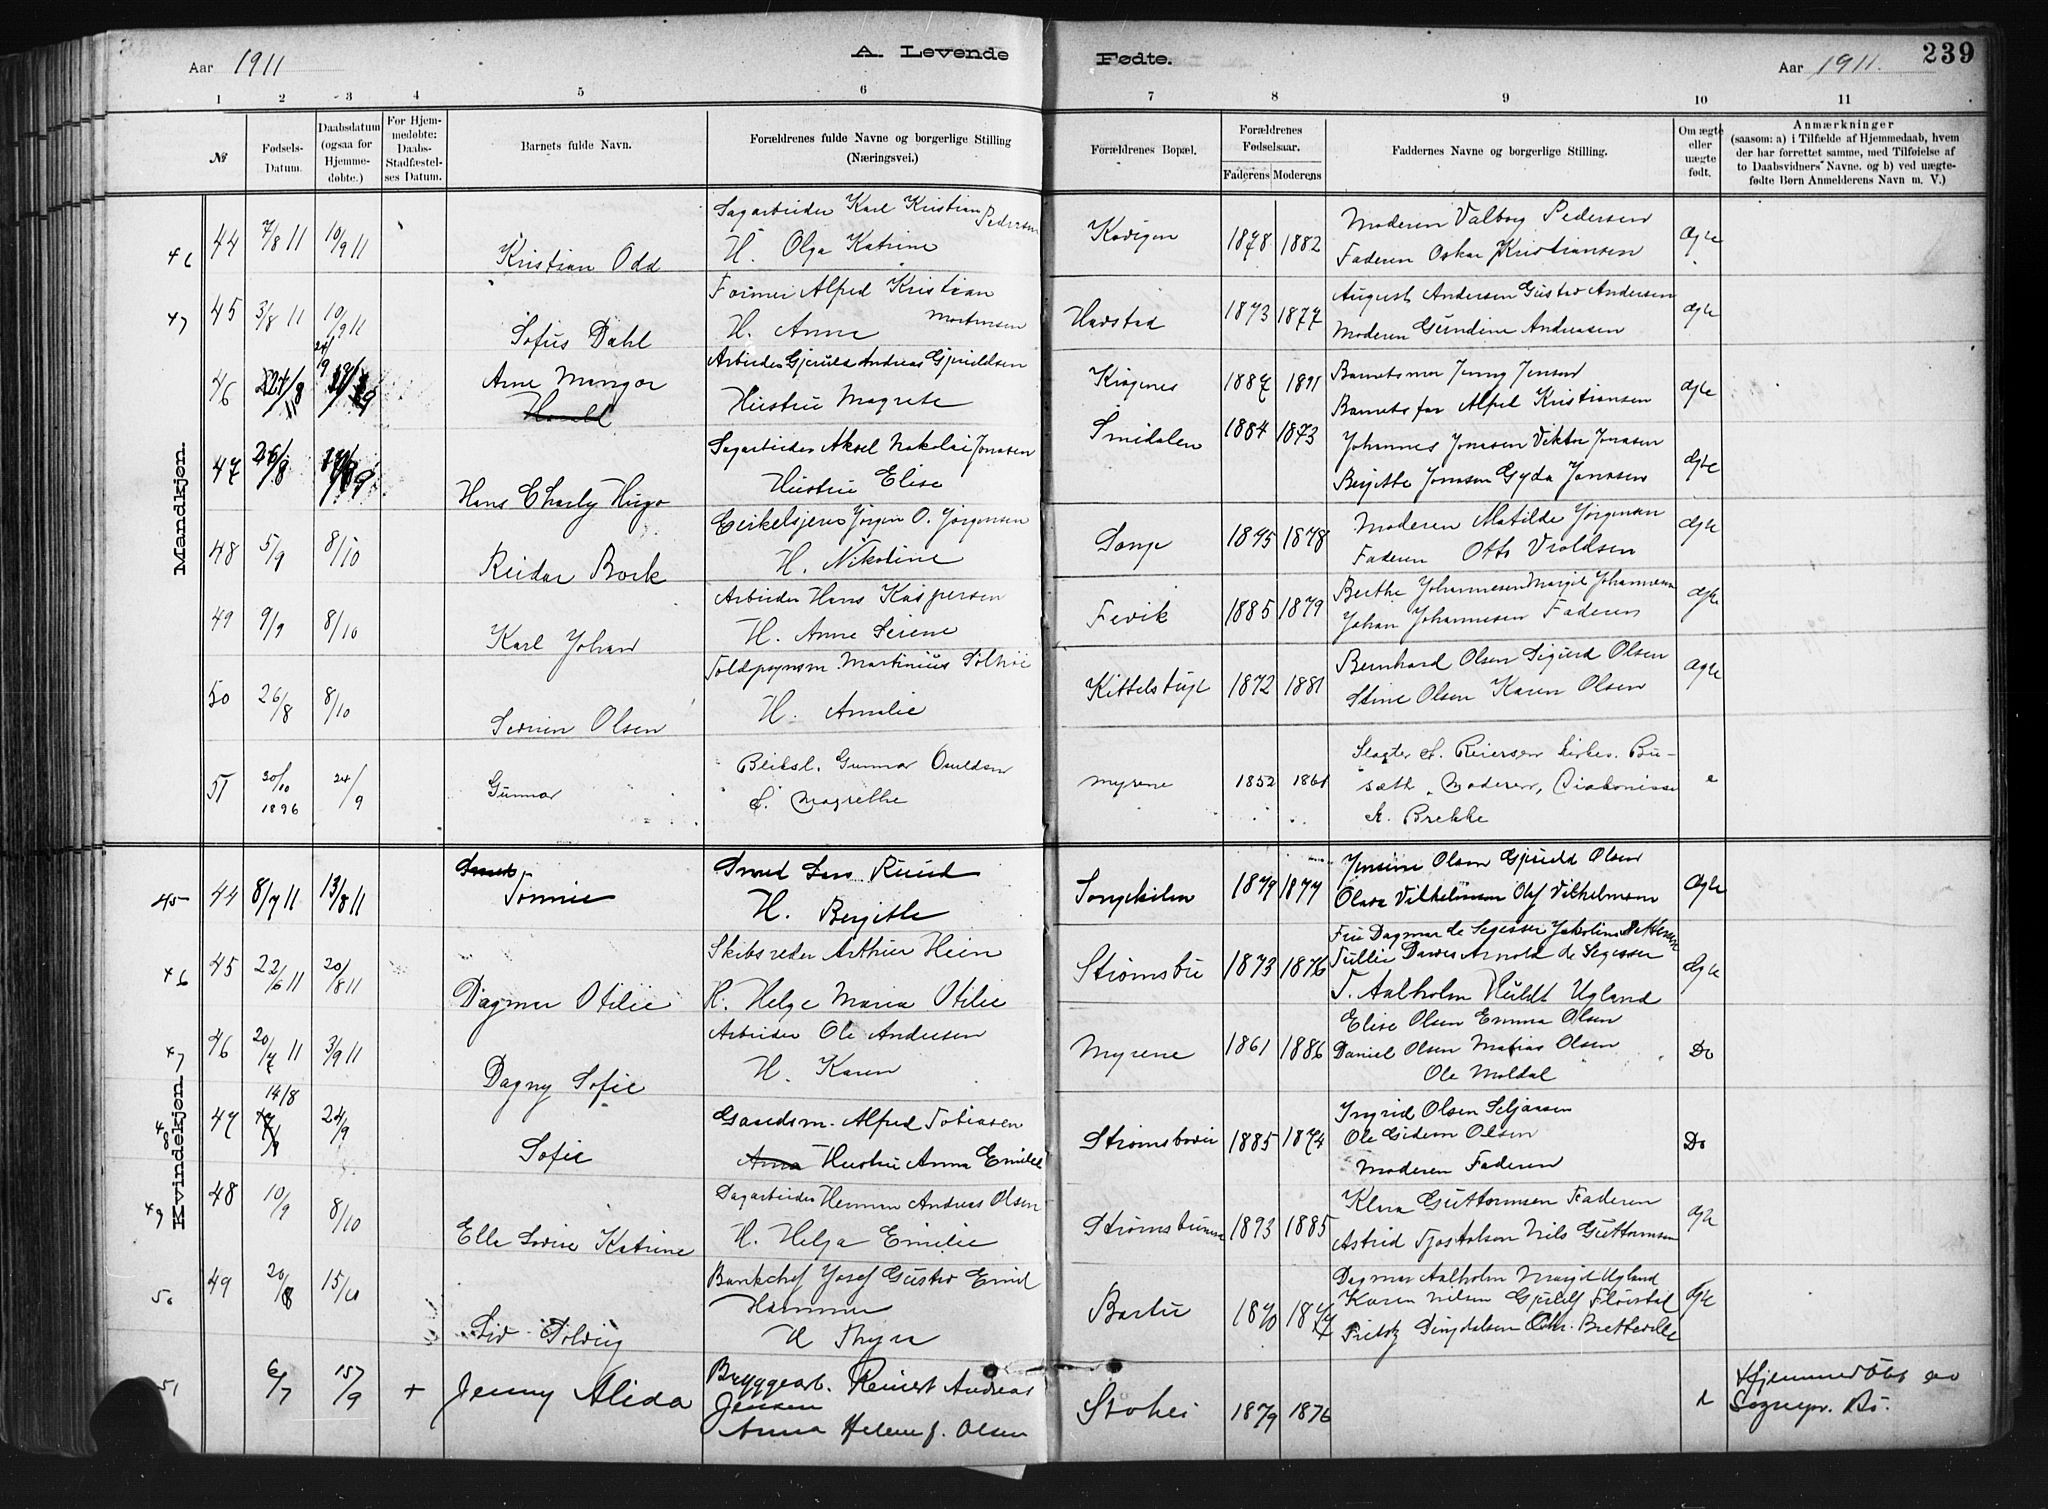 239
Aar 1911
A. Levende
Fødte.
Aar 1911.
1 2 3 4 5 6 7 8 9 10 11
№
Fødsels-
Datum.
Daabsdatum
(ogsaa for
Hjemme-
døbte.)
For Hjem-
medøbte:
Daabs-
Stadfæstel-
ses Datum.
Barnets fulde Navn.
Forældrenes fulde Navne og borgerlige Stilling
(Næringsvei.)
Forældrenes Bopæl.
Forældrenes
Fødselsaar.
Faderens Moderens
Faddernes Navne og borgerlige Stilling.
Om ægte
eller
uægte
født.
Anmærkninger
(saasom: a) i Tilfælde af Hjemmedaab, hvem
der har forrettet samme, med Tilføielse af
to Daabsvidners Navne, og b) ved uægte-
fødte Børn Anmelderens Navn m. V.)
Mandkjøn.
46 44 7/8 11 10/9 11
Kristian Odd
Sagarbeider Karl Kristian Pedersen
H. Olga Katrine
1878 1882
Moderen Valborg Pedersen
Faderen Oskar Kristiansen
Ægte
47 45 3/8 11 10/9 11
Sofus Dahl
Former Alfred Kristian Mortensen
H. Anne
Havstad
1873 1877
August Andersen Gustav Andersen
Moderen Gundine Andreasen
Ægte
46 24/9
Arne Mangor
Harald
Arbeider Gjeruld Andreas Gjeruldsen
Hustru Magrete
Krøgenes
1887 1891
Barnets mor Jenny Jensen
Barnets far Alfred Kristiansen
Ægte
47 26/8
Hans Charly Hugo
Sagarbeider Aksel Nikolai Jonasen
Hustru Elise
Smidalen
1884 1873
Johannes Jonasen Viktor Jonasen
Birgitte Jonasen Gyda Jonasen
Ægte
48 5/9 8/10
Reidar Bork
Cirkelskjærer Jørgen O. Jørgensen
H. Nikoline
Songe
1875 1878
Moderen Matilde Jørgensen
Faderen Otto Vroldsen
Ægte
49 9/9 8/10
Karl Johan
Arbeider Hans Kaspersen
H. Anne Serene
Fevik
1885 1879
Berthe Johannesen Margit Johannesen
Johan Johannesen Faderen
Ægte
50 26/8 8/10
Sverren Olsen
Toldopsynsm. Martinius
H. Amalie
1872 1881
Bernhard Olsen Sigurd Olsen
Stine Olsen Karen Olsen
Ægte
51 30/10 1896 24/9
Gunnar
Bliksl. Gunnar Osuldsen
Magrethe
Myrene
1852 1861
Slagter Reiersen
Moderen, Diakonisse
K. Brekke
e
Kvindekjøn
45 44 8/7 11 13/8 11
Tonnie
Smed Lars Ruud
H. Bergitte
Songekilen
1879 1877
Jensine Olsen Gjeruld Olsen
Olava Vilhelmsen Olaf Vilhelmsen
Ægte
46 45 22/6 11 20/8 11
Dagmar Otilie
Skibsreder Arthur Hein
H. Helga Maria Otilie
Strømsbu
1873 1876
Fru Dagmar de Segesser
Arnold de Segesser
T. Aalholm Huldt Ugland
Ægte
47 46 20/7 11 3/9 11
Dagny Sofie
Arbeider Ole Andersen
H. Karen
Myrene
1861 1886
Elise Olsen Emma Olsen
Daniel Olsen Matias Olsen
Ole Moldal
Do
48 47 14/8 24/9
Sofie
Gaardsm. Alfred Tobiasen
Anna Hustru Anna Emilie
1885 1874
Ingrid Olsen Seljaasen
Ole Gidem Olsen
Moderen Faderen
Do
49 48 10/9 8/10
Elle Lovise Katrine
Dagarbeider Herman Andreas Olsen
H. Helga Emilie
1893 1885
Klara Guttormsen Faderen
Astrid Tjostolsen Nils Guttormsen
50 49 20/8 15/10
Liv Solveig
Bankchef Josef Gustav Emil
Hammer
H Thyra
Barbu
1870 1877
Dagmar Aalholm Margit Ugland
Karen Nilsen
Fritz Dingdalsen Chr. Bretteville
Ægte
51 6/7 15/9 +
Jenny Alida
Bryggearb. Reinert Andreas
Jensen
Anna Helene f. Olsen
1879 1876
Hjemmedøbt av
Sogнepr. Bø.